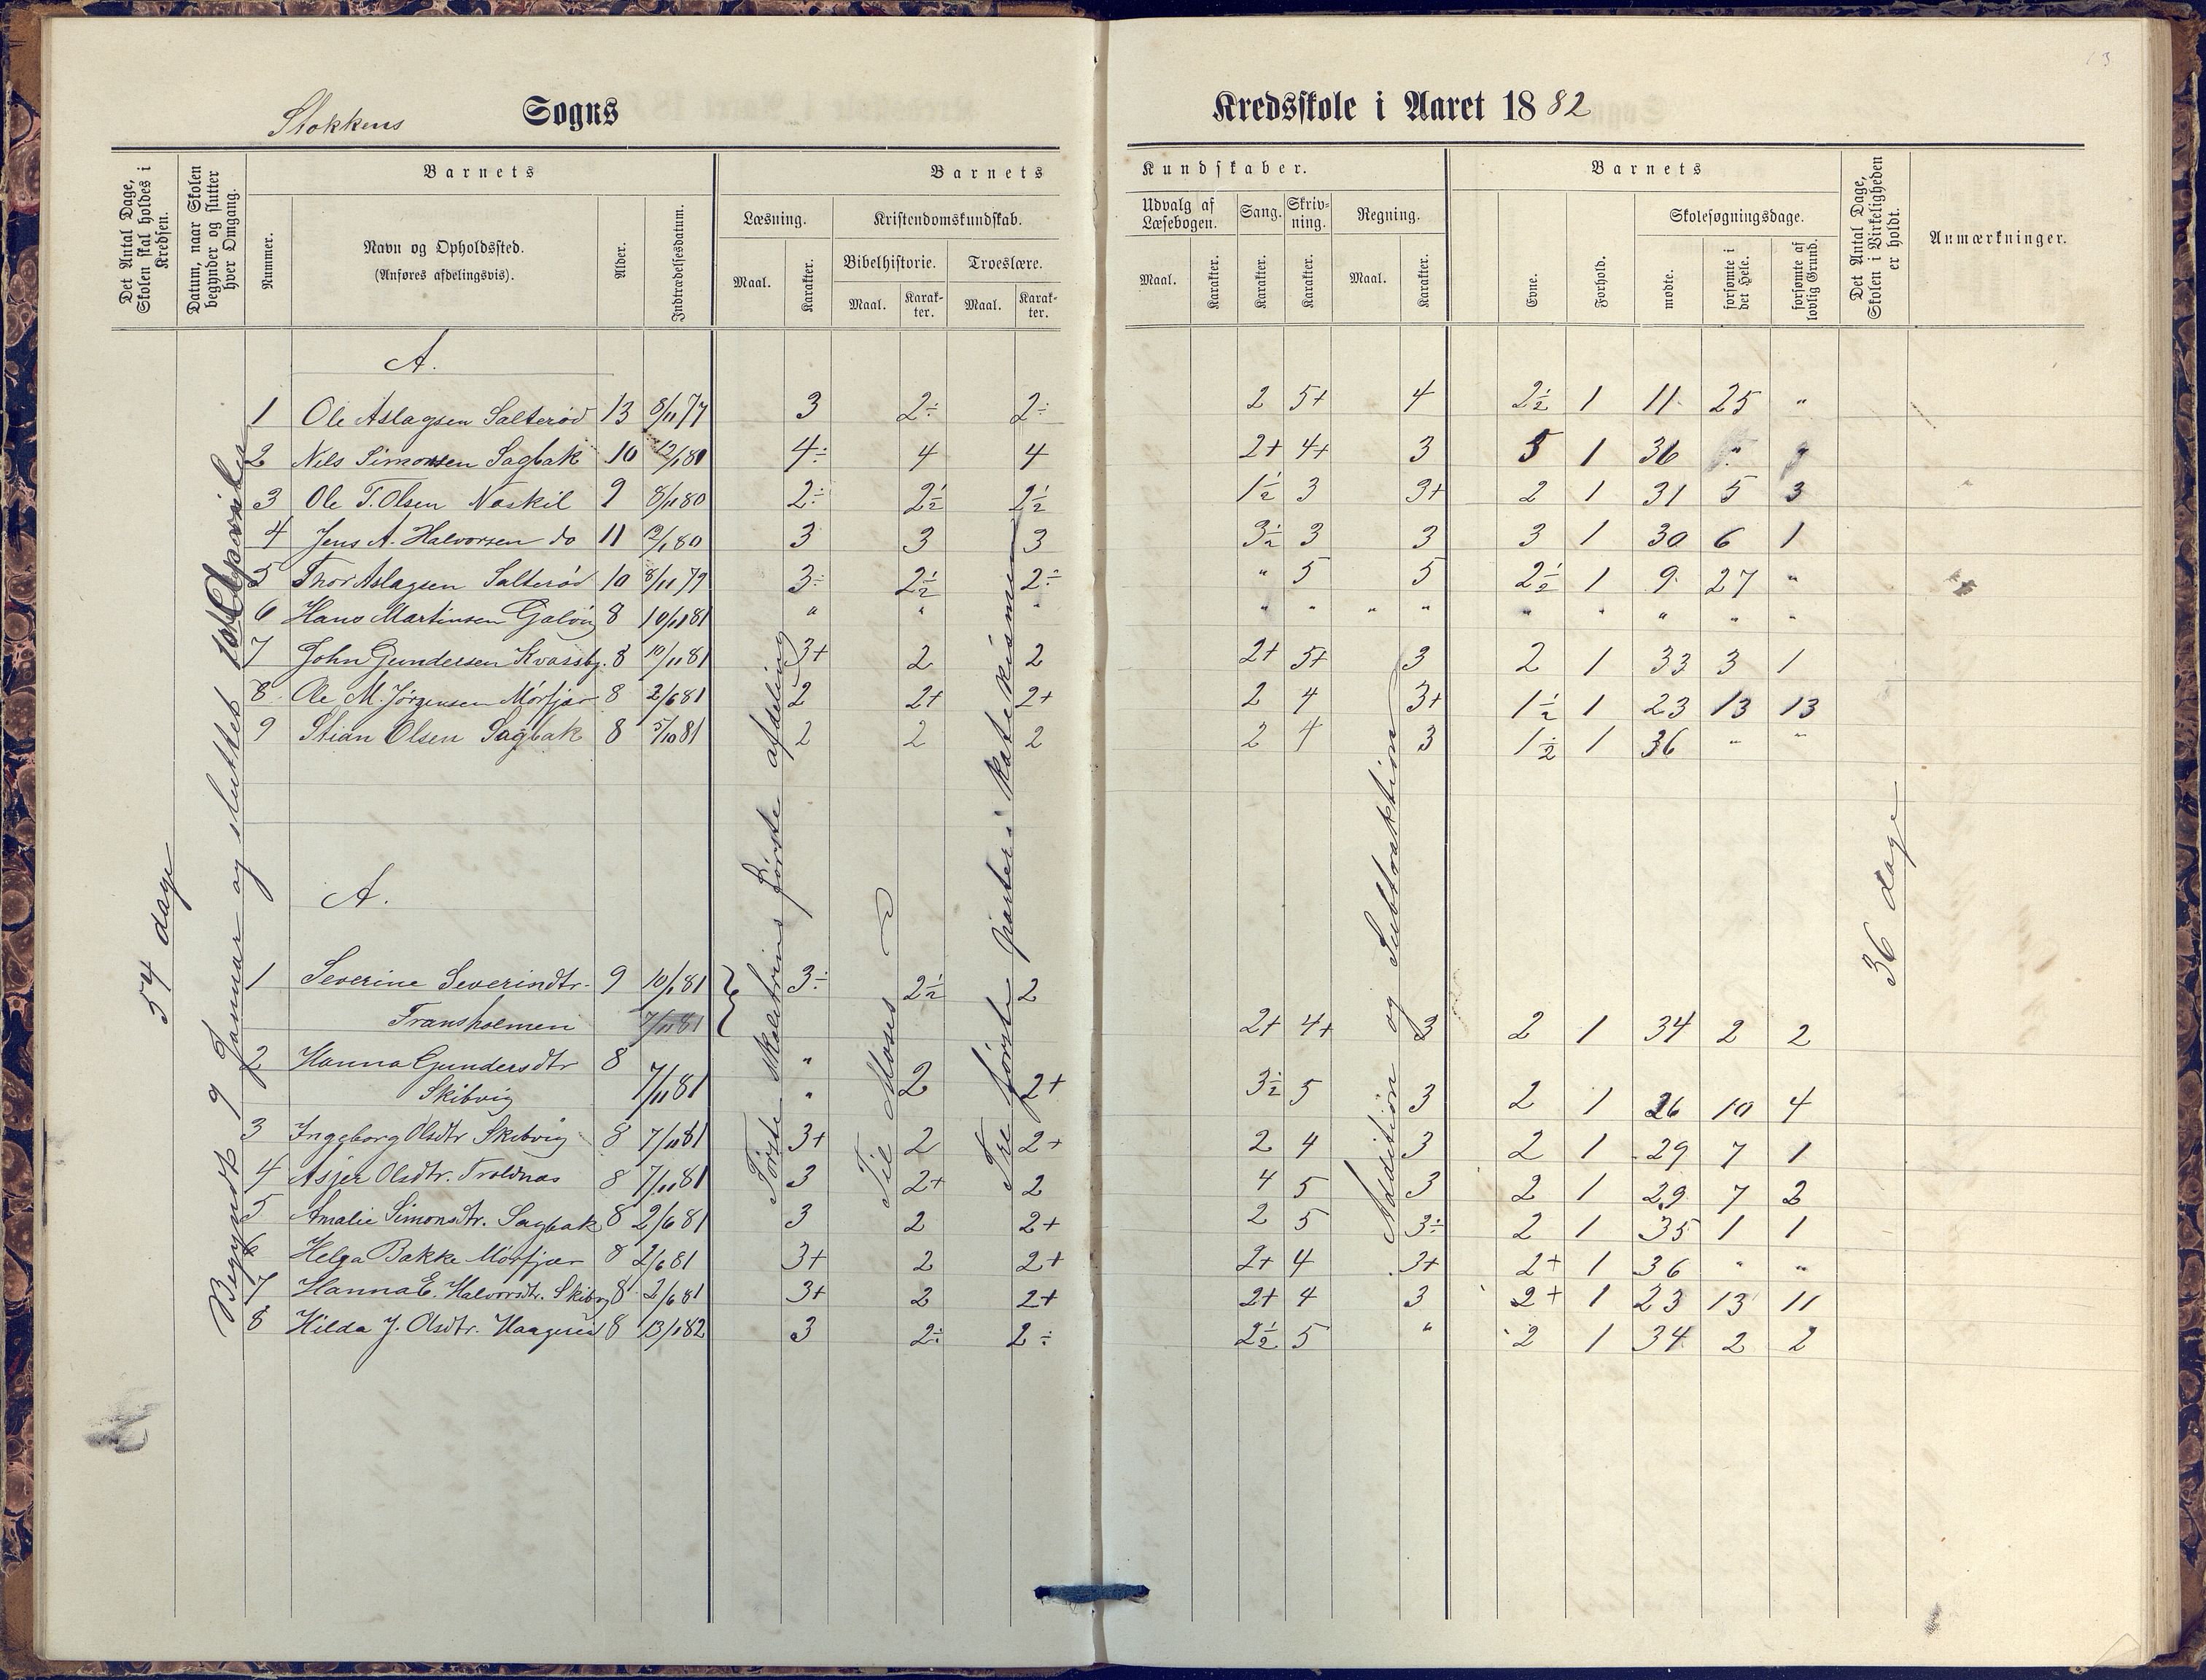 Stokkens Sogns Kredsskole i Aaret 1882
Det Antal Dage, Skolen skal holdes i Kredsen.
Datum, naar Skolen begynder og slutter hver Omgang.
Barnets
Nummer.
Navn og Opholdssted.
(Anføres afdelingsvis).
Alder.
Indtrædelsesdatum.
Barnets Kundskaber.
Læsning.
Maal. Karakter.
Kristendomskundskab.
Bibelhistorie. Troeslære.
Maal. Karakter. Maal. Karakter.
Udvalg af Læsebogen. Sang. Skrivning. Regning.
Maal. Karakter. Karakter. Karakter. Maal. Karakter.
Barnets
Evne. Forhold.
Skolesøgningsdage.
mødte. forsømte i det Hele. forsømte af lovlig Grund.
Det Antal Dage, Skolen i Virkeligheden er holdt.
Anmærkninger.
54 dage
Begyndt 9 Januar og sluttet
Første skoletrins første afdeling
Til Moses
Tre første parter i Katekismen
Addition og Subtraktion
36 dage
A.
1 Ole Aslagsen Salterød 13 8/11 77 3 2÷ 2÷ 2 5+ 4 2½ 1 11 25 "
2 Nils Simonsen Sagbak 10 12/1 80 4÷ 4 4 2+ 4+ 3 3 1 36 "
3 Ole T. Olsen Naskil 9 8/11 80 2÷ 2½ 2½ 1½ 3 3+ 2 1 31 5 3
4 Jens A. Halvorsen do 11 12/1 80 3 3 3 3½ 3 3 3 1 30 6 1
5 Thor Aslagsen Salterød 10 8/11 79 3÷ 2½ 2÷ " 5 5 2½ 1 9 27 "
6 Hans Martinsen Galvig 8 10/11 81 " " " " " " " " " " " "
7 John Gundersen Kvassby. 8 10/11 81 3+ 2 2 2+ 5+ 3 2 1 33 3 1
8 Ole M. Jørgensen Mørfjær 8 2/6 81 2 2+ 2+ 2 4 3+ 1½ 1 23 13 13
9 Stian Olsen Sagbak 8 5/10 81 2 2 2 2 4 3 1½ 1 36 " "
A.
1 Severine Severindtr. 9 10/1 81 3÷ 2½ 2
Fransholmen 7/11 81 2+ 4+ 3 2 1 34 2 2
2 Hanna Gundersdtr 8 "
Skibvig 7/11 81 " 2 2+ 3½ 5 3 2 1 26 10 4
3 Ingeborg Olsdtr Skibvig 8 7/11 81 3+ 2 2+ 2 4 3 2 1 29 7 1
4 Asjer Olsdtr. Troldnæs 8 7/11 81 3 2+ 2 4 5 3 2 1 29 7 2
5 Amalie Simonsdtr. Sagbak 8 2/6 81 3 2 2+ 2 5 3÷ 2 1 35 1 1
6 Helga Bakke Mørfjær 8 2/6 81 3+ 2 2+ 2+ 4 3+ 2+ 1 36 " "
7 Hanna E. Halvorsdtr. Skibvig 8 2/6 81 3+ 2 2+ 2+ 4 3 2+ 1 23 13 11
8 Hilda J. Olsdtr. 8 13/1 82 3 2÷ 2÷ 2½ 5 " 2 1 34 2 2